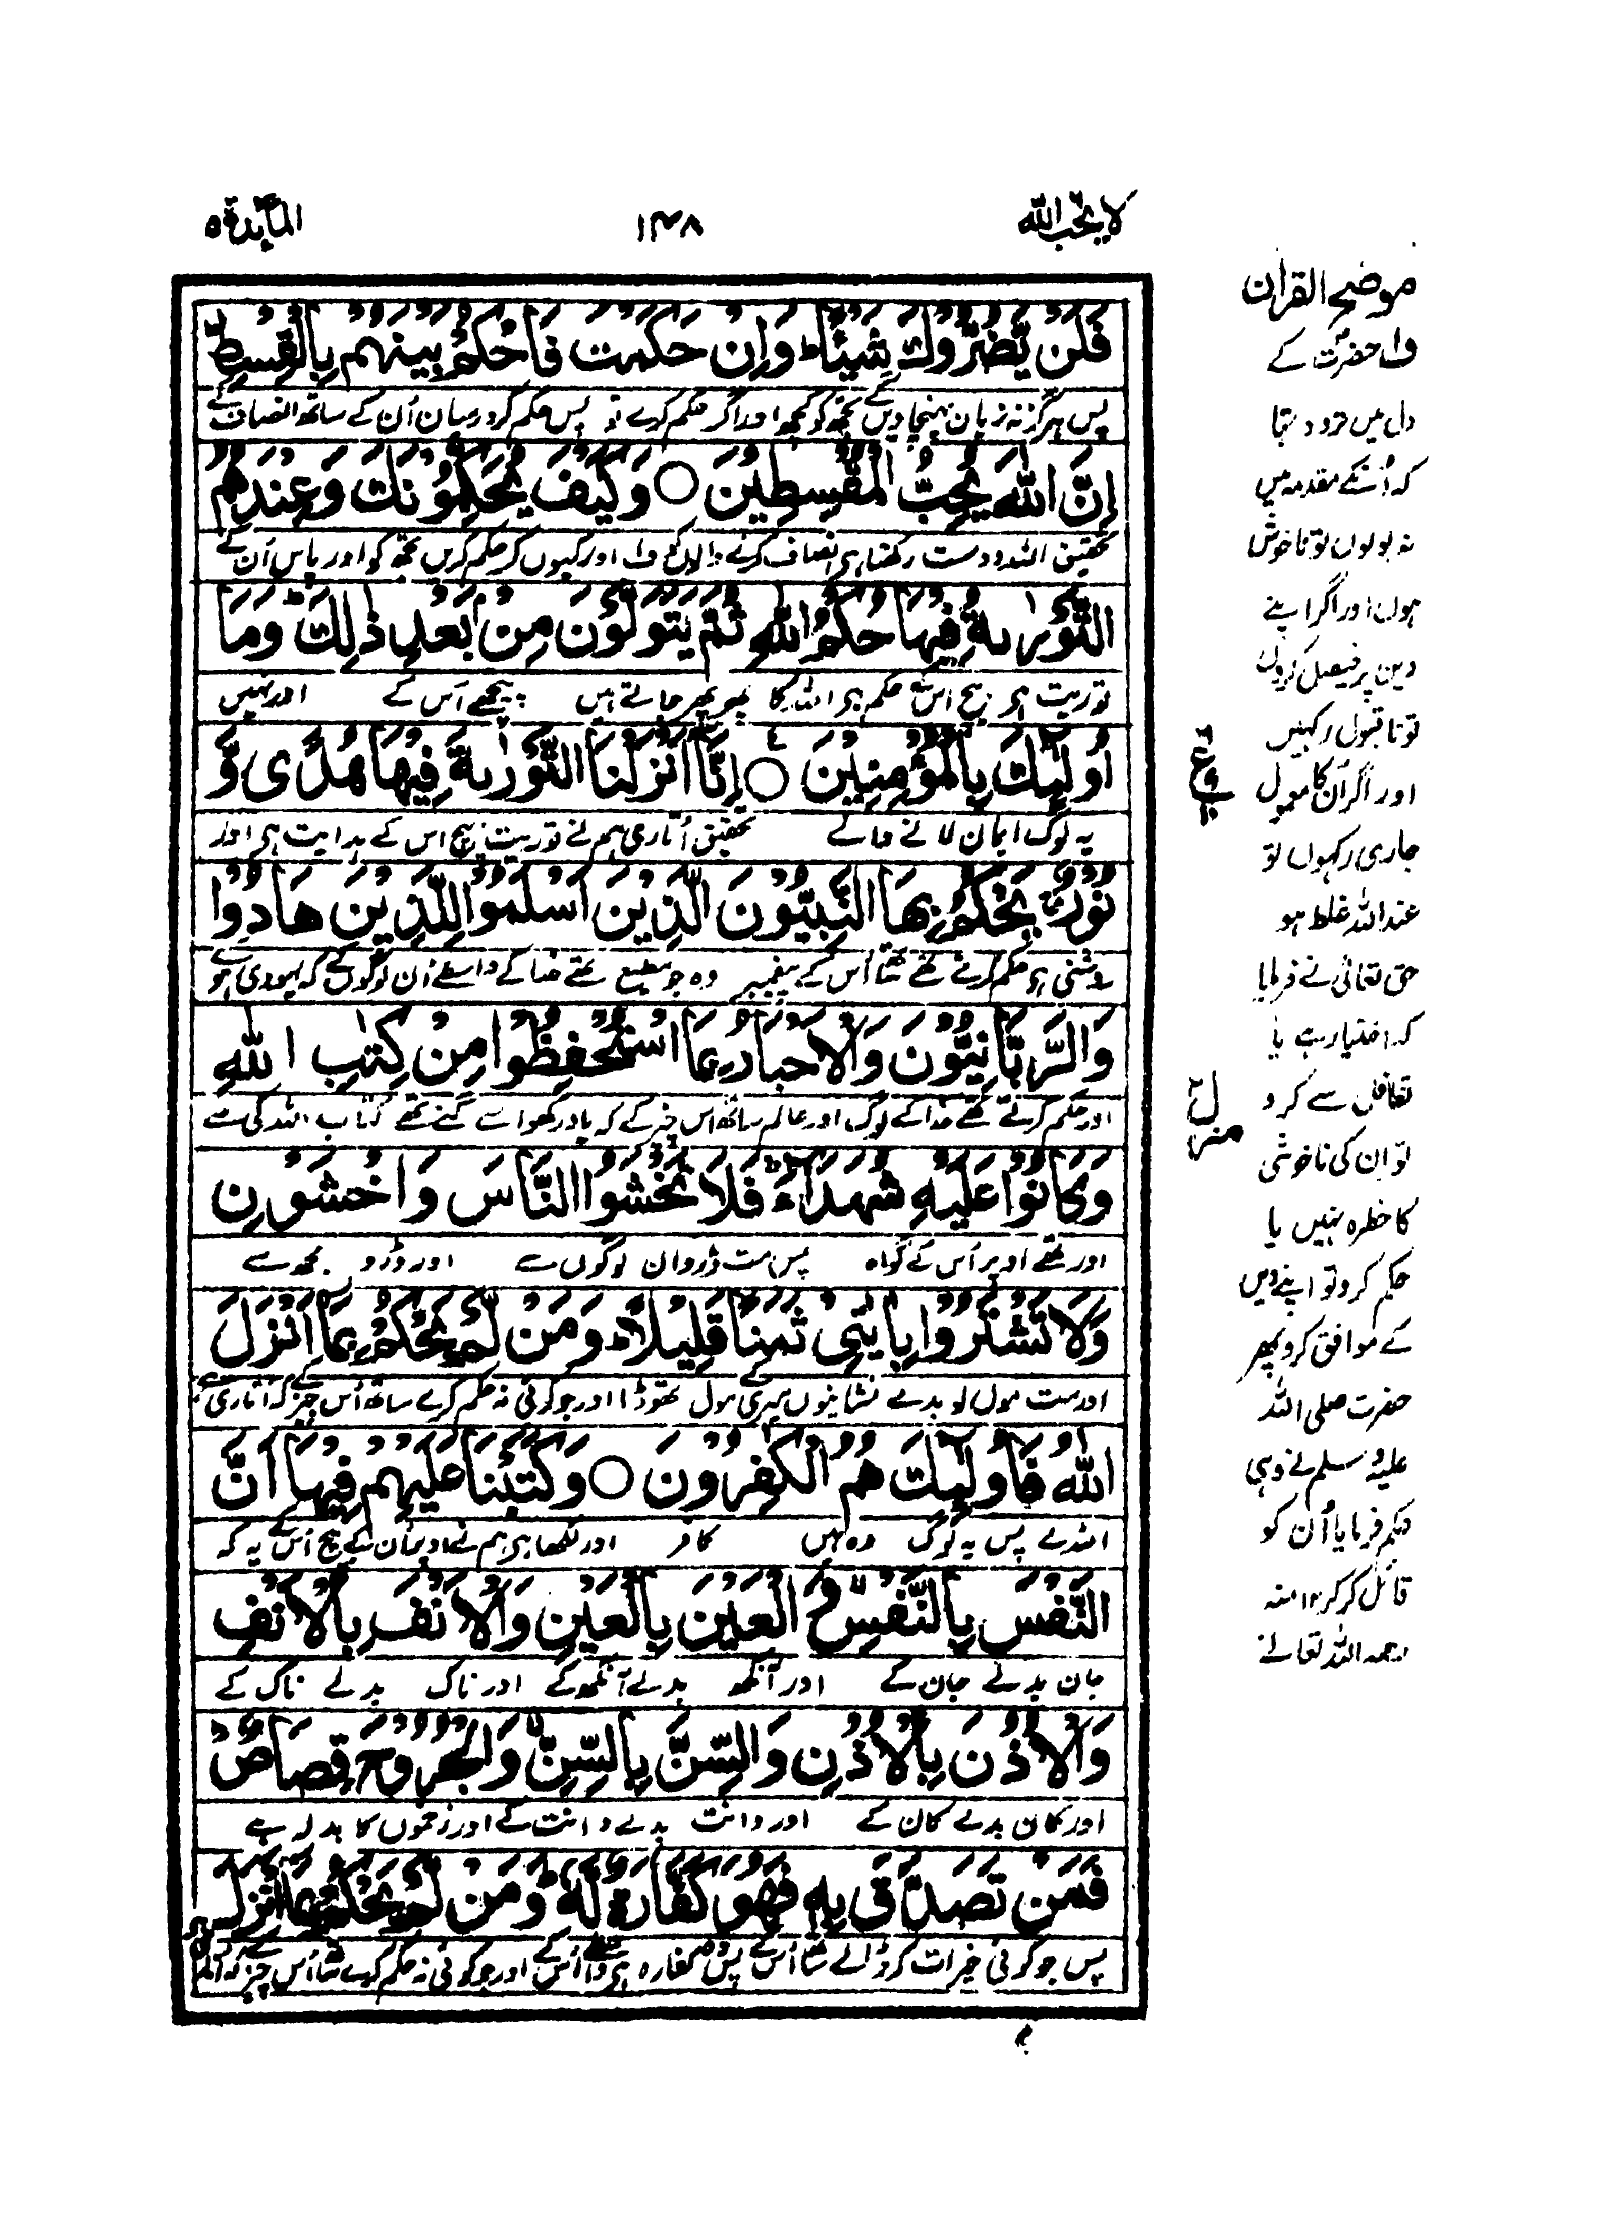 لا يحب الله
١٤٨
المائدة ٥
فَلَنْ يَّضُرُّوْكَ شَيْئًا ؕ وَاِنْ حَكَمْتَ فَاحْكُمْ بَيْنَهُمْ بِالْقِسْطِ ؕ
پس ہرگز نہ زیان پہنچا دیں گے تجھ کو کچھ اور اگر حکم کرے تو پس حکم کر درمیان اُن کے ساتھ انصاف کے
اِنَّ اللّٰهَ يُحِبُّ الْمُقْسِطِيْنَ ○ وَكَيْفَ يُحَكِّمُوْنَكَ وَعِنْدَهُمُ
تحقیق اللہ دوست رکھتا ہی انصاف کرنے والوں کو ف۱ اور کیوں کر حکم کریں تجھ کو اور پاس اُن کے
التَّوْرٰىةُ فِيْهَا حُكْمُ اللّٰهِ ثُمَّ يَتَوَلَّوْنَ مِنْۢ بَعْدِ ذٰلِكَ ؕ وَمَاۤ
توریت ہی بیچ اس کے حکم ہی اللہ کا پھر پھر جاتے ہیں پیچھے اس کے اور نہیں
اُولٰٓئِكَ بِالْمُؤْمِنِيْنَ ○ اِنَّاۤ اَنْزَلْنَا التَّوْرٰىةَ فِيْهَا هُدًى وَّ
یہ لوگ ایمان لانے والے تحقیق اُتاری ہم نے توریت بیچ اس کے ہدایت ہی اور
نُوْرٌ ۚ يَحْكُمُ بِهَا النَّبِيُّوْنَ الَّذِيْنَ اَسْلَمُوْا لِلَّذِيْنَ هَادُوْا
روشنی ہی حکم کرتے تھے ساتھ اُس کے پیغمبر وہ جو مطیع تھے خدا کے واسطے اُن لوگوں کے کہ یہودی ہوے
وَالرَّبَّانِيُّوْنَ وَالْاَحْبَارُ بِمَا اسْتُحْفِظُوْا مِنْ كِتٰبِ اللّٰهِ
اور حکم کرتے تھے خدا کے لوگ اور عالم ساتھ اس چیز کے کہ یاد رکھوائے گئے تھے کتاب اللہ کی سے
وَكَانُوْا عَلَيْهِ شُهَدَآءَ ۚ فَلَا تَخْشَوُا النَّاسَ وَاخْشَوْنِ
اور تھے اوپر اُس کے گواہ پس مت ڈرو ان لوگوں سے اور ڈرو مجھ سے
وَلَا تَشْتَرُوْا بِاٰيٰتِيْ ثَمَنًا قَلِيْلًا ؕ وَمَنْ لَّمْ يَحْكُمْ بِمَاۤ اَنْزَلَ
اور مت مول لو بدلے نشانیوں میری مول تھوڑا اور جو کوئی نہ حکم کرے ساتھ اُس چیز کے کہ اتاری ہے
اللّٰهُ فَاُولٰٓئِكَ هُمُ الْكٰفِرُوْنَ ○ وَكَتَبْنَا عَلَيْهِمْ فِيْهَاۤ اَنَّ
اللہ نے پس یہ لوگ وہ ہیں کافر اور لکھا ہی ہم نے اوپر ان کے بیچ اُس کے یہ کہ
النَّفْسَ بِالنَّفْسِ ۙ وَالْعَيْنَ بِالْعَيْنِ وَالْاَنْفَ بِالْاَنْفِ
جان بدلے جان کے اور آنکھ بدلے آنکھ کے اور ناک بدلے ناک کے
وَالْاُذُنَ بِالْاُذُنِ وَالسِّنَّ بِالسِّنِّ ۙ وَالْجُرُوْحَ قِصَاصٌ ؕ
اور کان بدلے کان کے اور دانت بدلے دانت کے اور زخموں کا بدلہ ہے
فَمَنْ تَصَدَّقَ بِهٖ فَهُوَ كَفَّارَةٌ لَّهٗ ؕ وَمَنْ لَّمْ يَحْكُمْ بِمَاۤ اَنْزَلَ
پس جو کوئی خیرات کر ڈالے ساتھ اُس کے پس وہ کفارہ ہی واسطے اُس کے اور جو کوئی نہ حکم کرے ساتھ اُس چیز کے کہ
موضح القرآن
ف۱ حضرت کے
دل میں تردد تھا
کہ اُنکے مقدمہ میں
نہ بولوں تو ناخوش
ہوں اور اگر اپنے
دین پر فیصل کروں
تو نا قبول رکہیں
اور اگر اُن کا معمول
جاری رکہوں تو
عند اللہ غلط ہو
حق تعالیٰ نے فرمایا
کہ اختیار ہے یا
تغافل سے کرو
تو ان کی ناخوشی
کا خطرہ نہیں یا
حکم کرو تو اپنے دیں
کے موافق کرو پھر
حضرت صلی اللہ
علیہ وسلم نے وہی
حکم فرمایا اُن کو
قائل کر کر ۱۲ منہ
رحمہ اللہ تعالےٰ
ع
منزل ۲